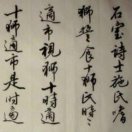 石室詩士施氏嗜
獅誓食十獅氏時時
適市視獅十時適
十獅適市是時適